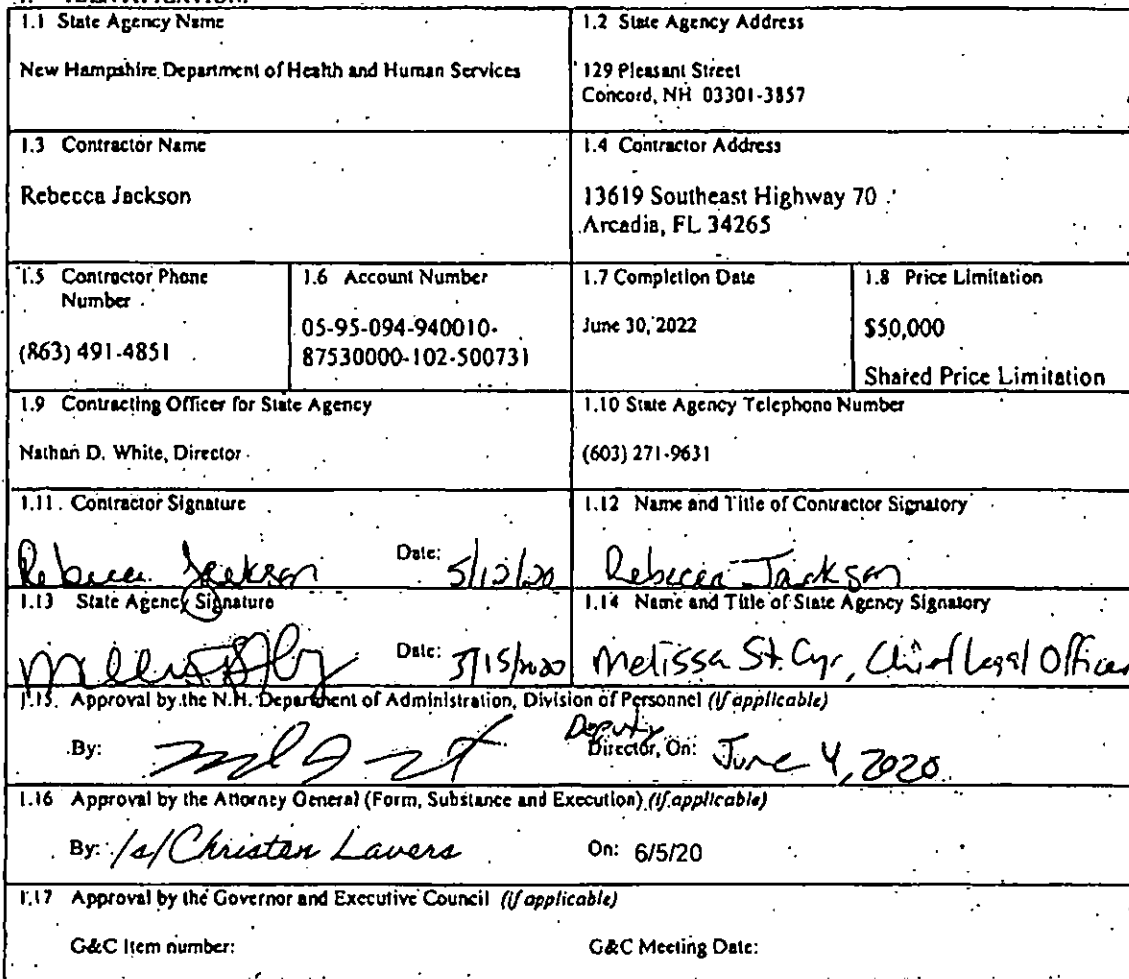 1.1 State Agency Name
New Hampshire Department of Health and Human Services
1.2 State Agency Address
129 Pleasant Street
Concord, NH 03301-3857
1.3 Contractor Name
Rebecca Jackson
1.4 Contractor Address
13619 Southeast Highway 70
Arcadia, FL 34265
1.5 Contractor Phone
Number
(863) 491-4851
1.6 Account Number
05-95-094-940010-
87530000-102-500731
1.7 Completion Date
June 30, 2022
1.8 Price Limitation
$50,000
Shared Price Limitation
1.9 Contracting Officer for State Agency
Nathan D. White, Director
1.10 State Agency Telephone Number
(603) 271-9631
1.11 Contractor Signature
Rebecca Jackson Date: 5/12/20
1.12 Name and Title of Contractor Signatory
Rebecca Jackson
1.13 State Agency Signature
Date: 5/15/2020
1.14 Name and Title of State Agency Signatory
Melissa St. Cyr, Chief Legal Officer
1.15. Approval by the N.H. Department of Administration, Division of Personnel (if applicable)
Deputy
By: Director, On: June 4, 2020
1.16 Approval by the Attorney General (Form, Substance and Execution) (if applicable)
By: /s/ Christen Lavers On: 6/5/20
1.17 Approval by the Governor and Executive Council (if applicable)
G&C Item number: G&C Meeting Date: